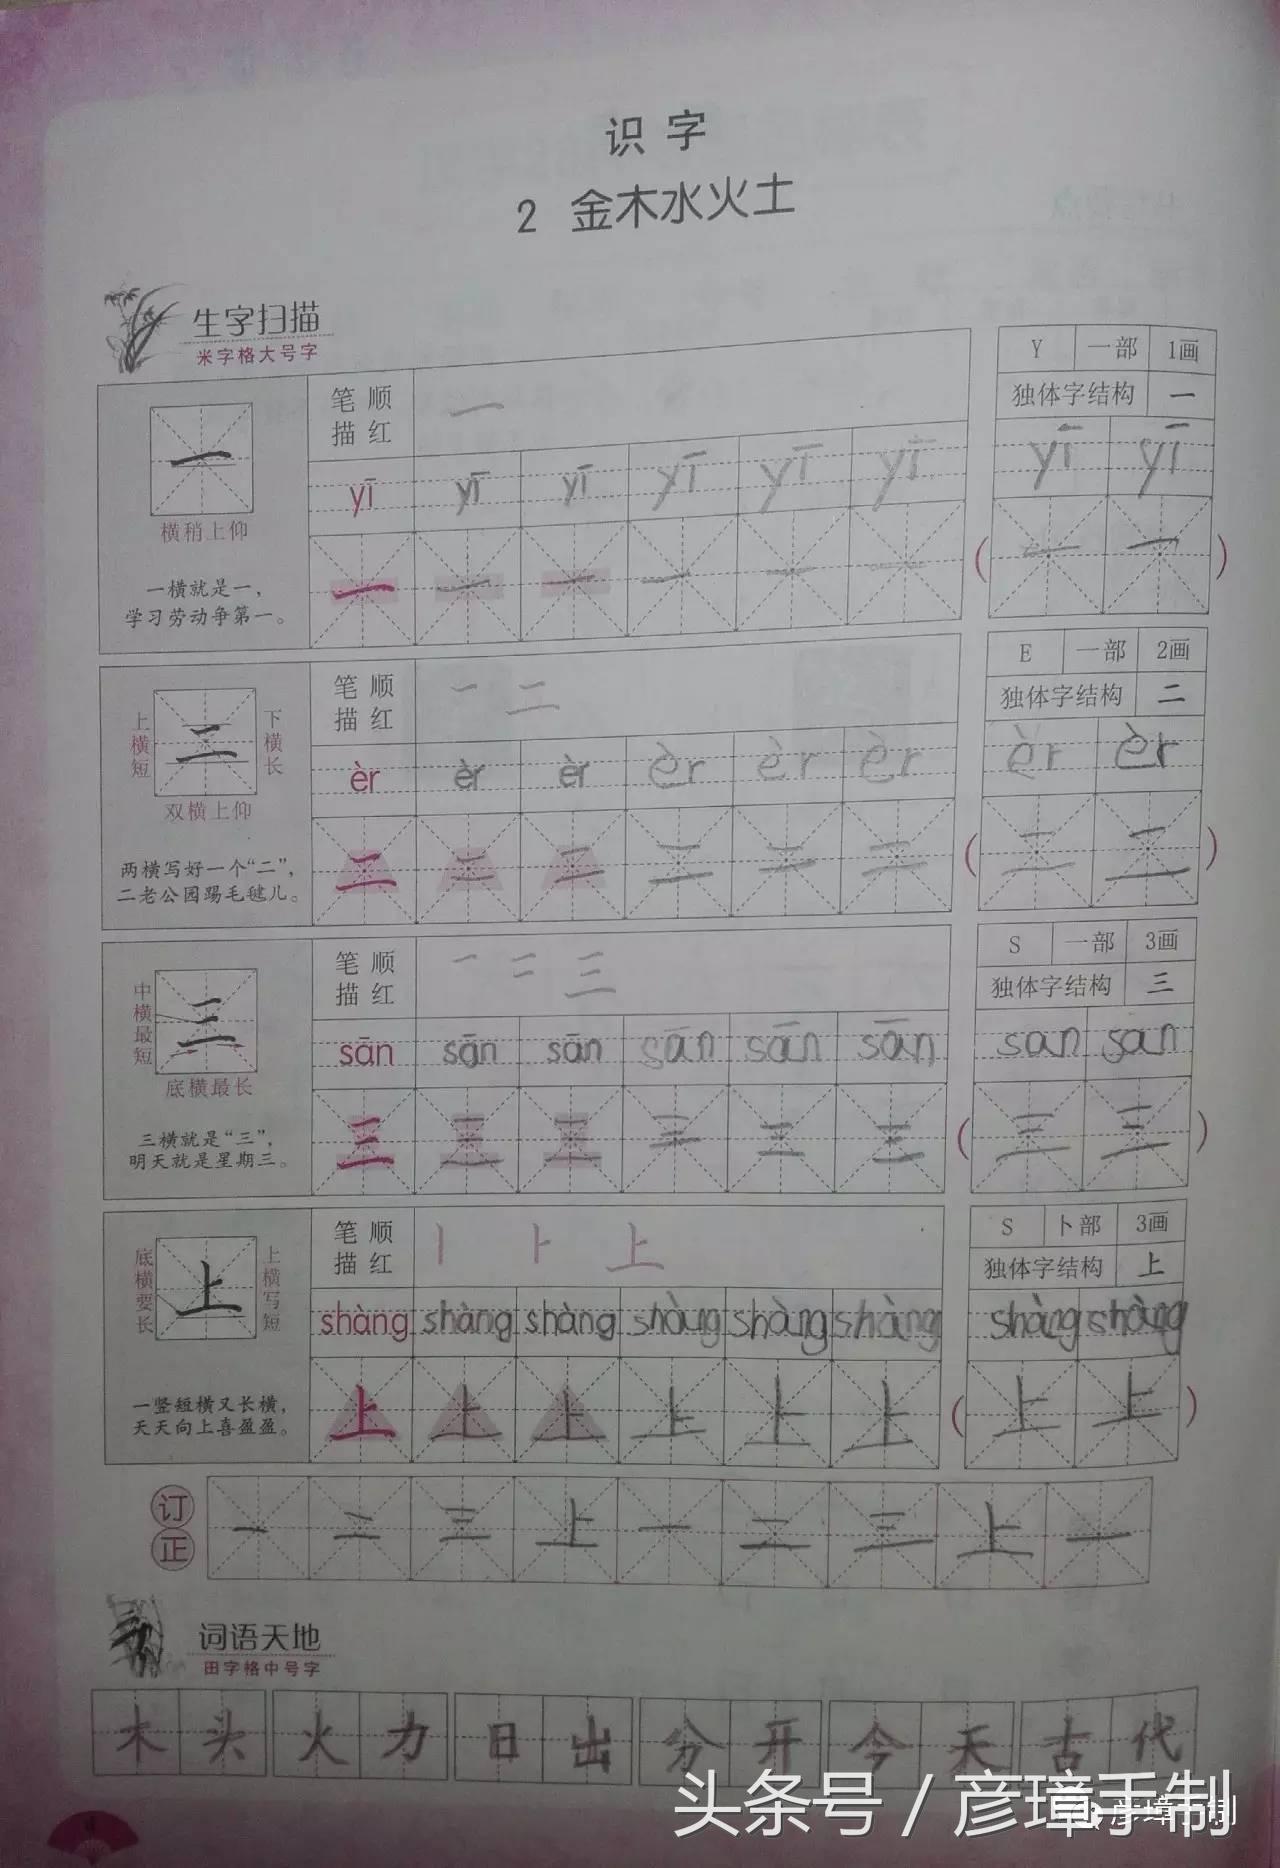 识 字
2 金木水火土
生字扫描
米字格大号字
一
横稍上仰
一横就是一，
学习劳动争第一。
笔 顺
描 红
一
yī yī yī yī yī yī
一 一 一 一 一 一
Y 一部 1画
独体字结构 一
yī yī
( 一 一 )
上横短
二
下横长
双横上仰
两横写好一个“二”，
二老公园踢毛毽儿。
笔 顺
描 红
一 二
èr èr èr èr èr èr
二 二 二 二 二 二
E 一部 2画
独体字结构 二
èr èr
( 二 二 )
中横最短
三
底横最长
三横就是“三”，
明天就是星期三。
笔 顺
描 红
一 二 三
sān sān sān sān sān sān
三 三 三 三 三 三
S 一部 3画
独体字结构 三
san san
( 三 三 )
底横要长
上
上横写短
一竖短横又长横，
天天向上喜盈盈。
笔 顺
描 红
丨 卜 上
shàng shàng shàng shàng shàng shàng
上 上 上 上 上 上
S 卜部 3画
独体字结构 上
shàng shàng
( 上 上 )
订正
一 二 三 上 一 二 三 上 一
词语天地
田字格中号字
木头 火力 日出 分开 今天 古代
头条号 / 彦璋手制
彦璋手制
4